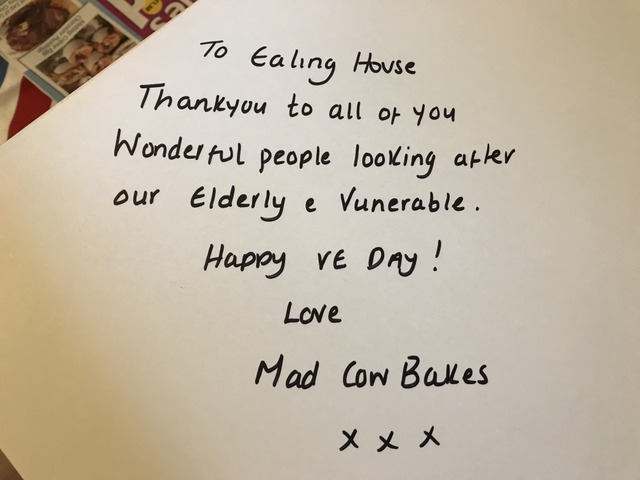 To Ealing House
Thankyou to all of you
Wonderful people looking after
our Elderly e Vunerable.
Happy VE DAY!
Love
Mad Cow Bakes
x x x